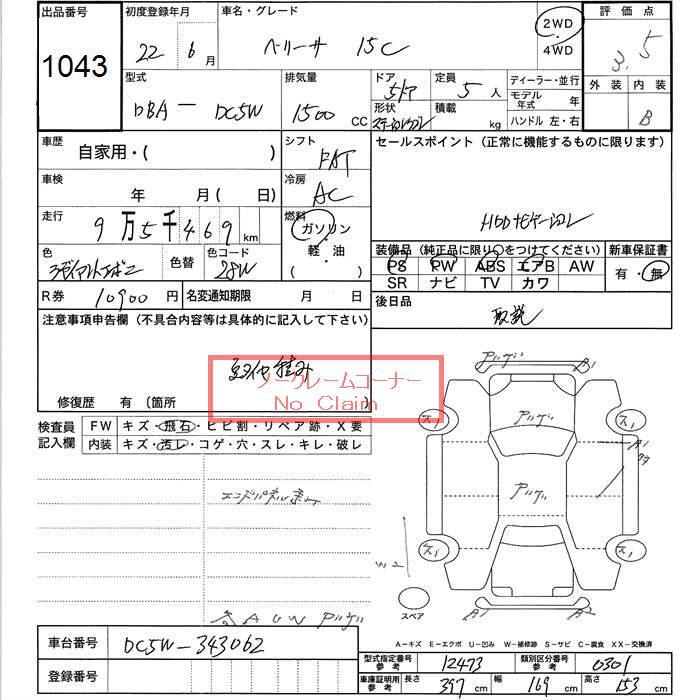 出品番号 初度登録年月 車名・グレード 評価点
1043 22 6月 ベリーサ 15C 2WD・4WD 3.5
型式 排気量 ドア 定員 ディーラー・並行 外装 内装
DBA - DC5W 1500 CC 5ドア 5人 モデル年式 年 B
形状 積載 kg ハンドル 左・右
車歴 シフト セールスポイント (正常に機能するものに限ります)
自家用・( ) FAT
車検 冷房
年 月( 日) AC HDDナビゲーション
走行 燃料
9万5千469km ガソリン
色 色替 色コード 軽・油 装備品 (純正品に限り○をつけてください) 新車保証書
28W ( ) PS PW ABS エアB AW 有・無
SR ナビ TV カワ
R券 10900円 名変通知期限 月 日 後日品
注意事項申告欄 (不具合内容等は具体的に記入して下さい) 取説
ノークレームコーナー
No Claim
修復歴 有 (箇所 )
検査員記入欄 FW キズ・飛石・ヒビ割・リペア跡・X要
内装 キズ・汚レ・コゲ・穴・スレ・キレ・破レ
アリゲ A1
アリゲ
A1
アリゲ
W2
スペア A1 A2
A-キズ E-エクボ U-凹み W-補修跡 S-サビ C-腐食 XX-交換済
車台番号 DC5W-343062
登録番号
型式指定番号 参考 12473 類別区分番号 参考 0301
車庫証明用 参考 長さ 397cm 幅 169cm 高さ 153cm